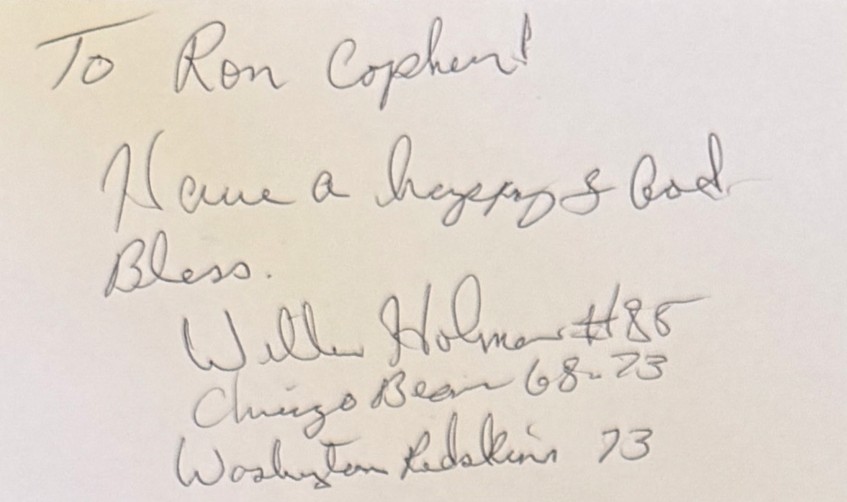 To Ron Cophen!
Have a happy & God
Bless.
Willie Holman #85
Chicago Bears 68-73
Washington Redskins 73